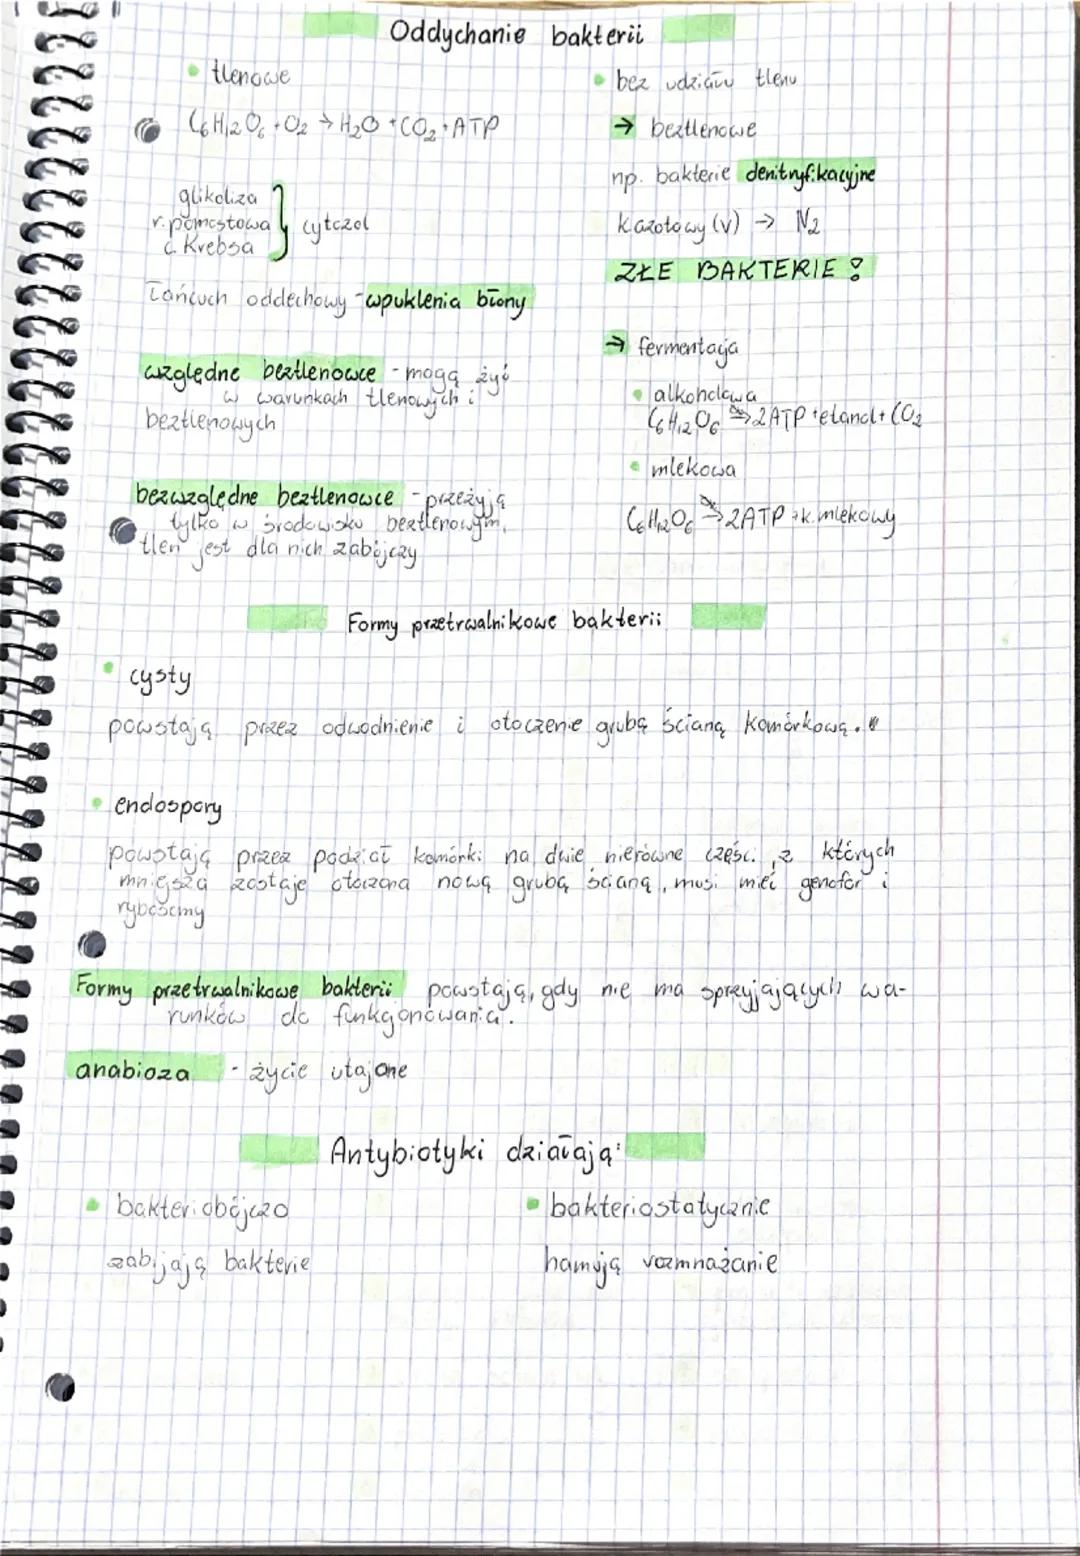 Oddychanie bakterii
• tlenowe
C6H12O6 + O2 → H2O + CO2 + ATP
glikoliza
r. pomostowa
c. Krebsa
} cytozol
Łańcuch oddechowy - wpuklenia błony
względne beztlenowce - mogą żyć
w warunkach tlenowych i
beztlenowych
bezwzględne beztlenowce - przeżyją
tylko w środowisku beztlenowym,
tlen jest dla nich zabójczy
• bez udziału tlenu
→ beztlenowe
np. bakterie denitryfikacyjne
k. azotowy (V) → N2
ZŁE BAKTERIE !
→ fermentacja
• alkoholowa
C6H12O6 → 2ATP + etanol + CO2
• mlekowa
C6H12O6 → 2ATP + k. mlekowy
Formy przetrwalnikowe bakterii
• cysty
powstają przez odwodnienie i otoczenie grubą ścianą komórkową.
• endospory
powstają przez podział komórki na dwie nierówne części, z których
mniejsza zostaje otoczona nową grubą ścianą, musi mieć genofor i
rybosomy
Formy przetrwalnikowe bakterii powstają, gdy nie ma sprzyjających wa-
runków do funkcjonowania.
anabioza - życie utajone
Antybiotyki działają:
• bakteriobójczo
zabijają bakterie
• bakteriostatycznie
hamują rozmnażanie